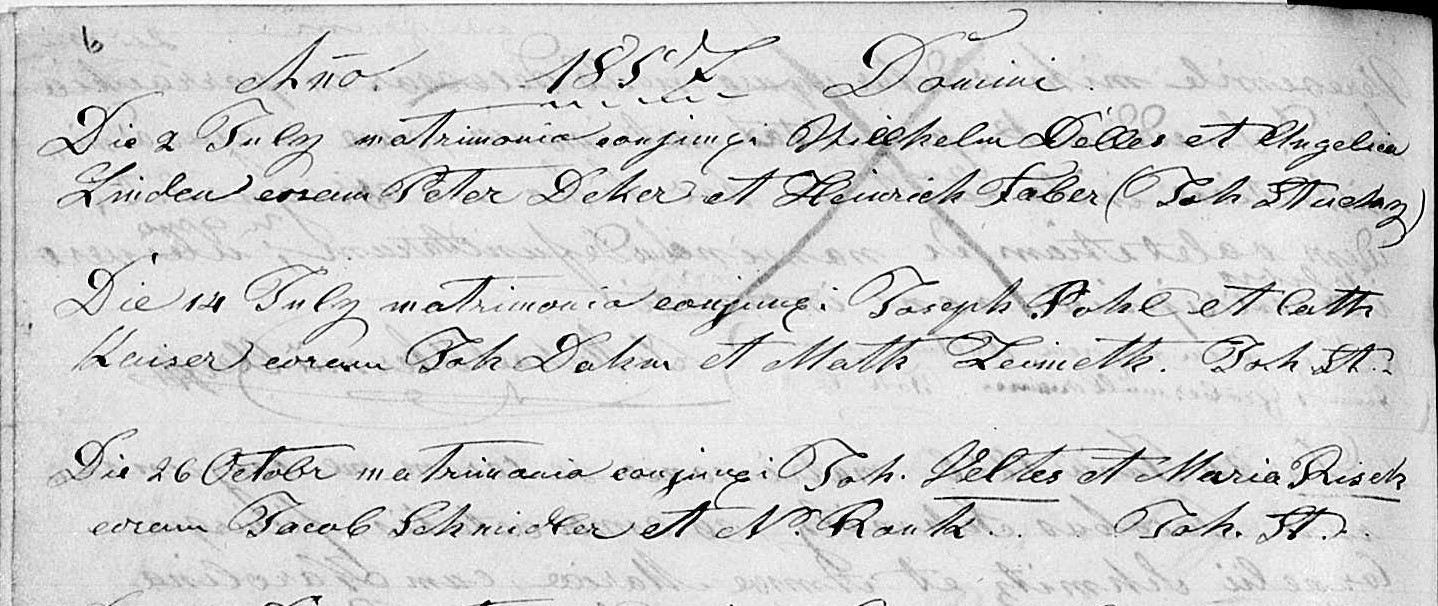 6
Ańo. 1857 Domini.
Die 2 July matrimonio conjunxi Wilhelm Delles et Angelica
Linden coram Peter Deker et Heinrich Faber (Joh Stucky)
Die 14 July matrimonio conjunxi Joseph Pohl et Cath
Kaiser coram Joh Dahm et Math Zeimeth. Joh St.
Die 26 Octobr matrimonio conjunxi Joh. Veltes et Maria Risch
coram Jacob Schmidler et N. Rauk. Joh. St.